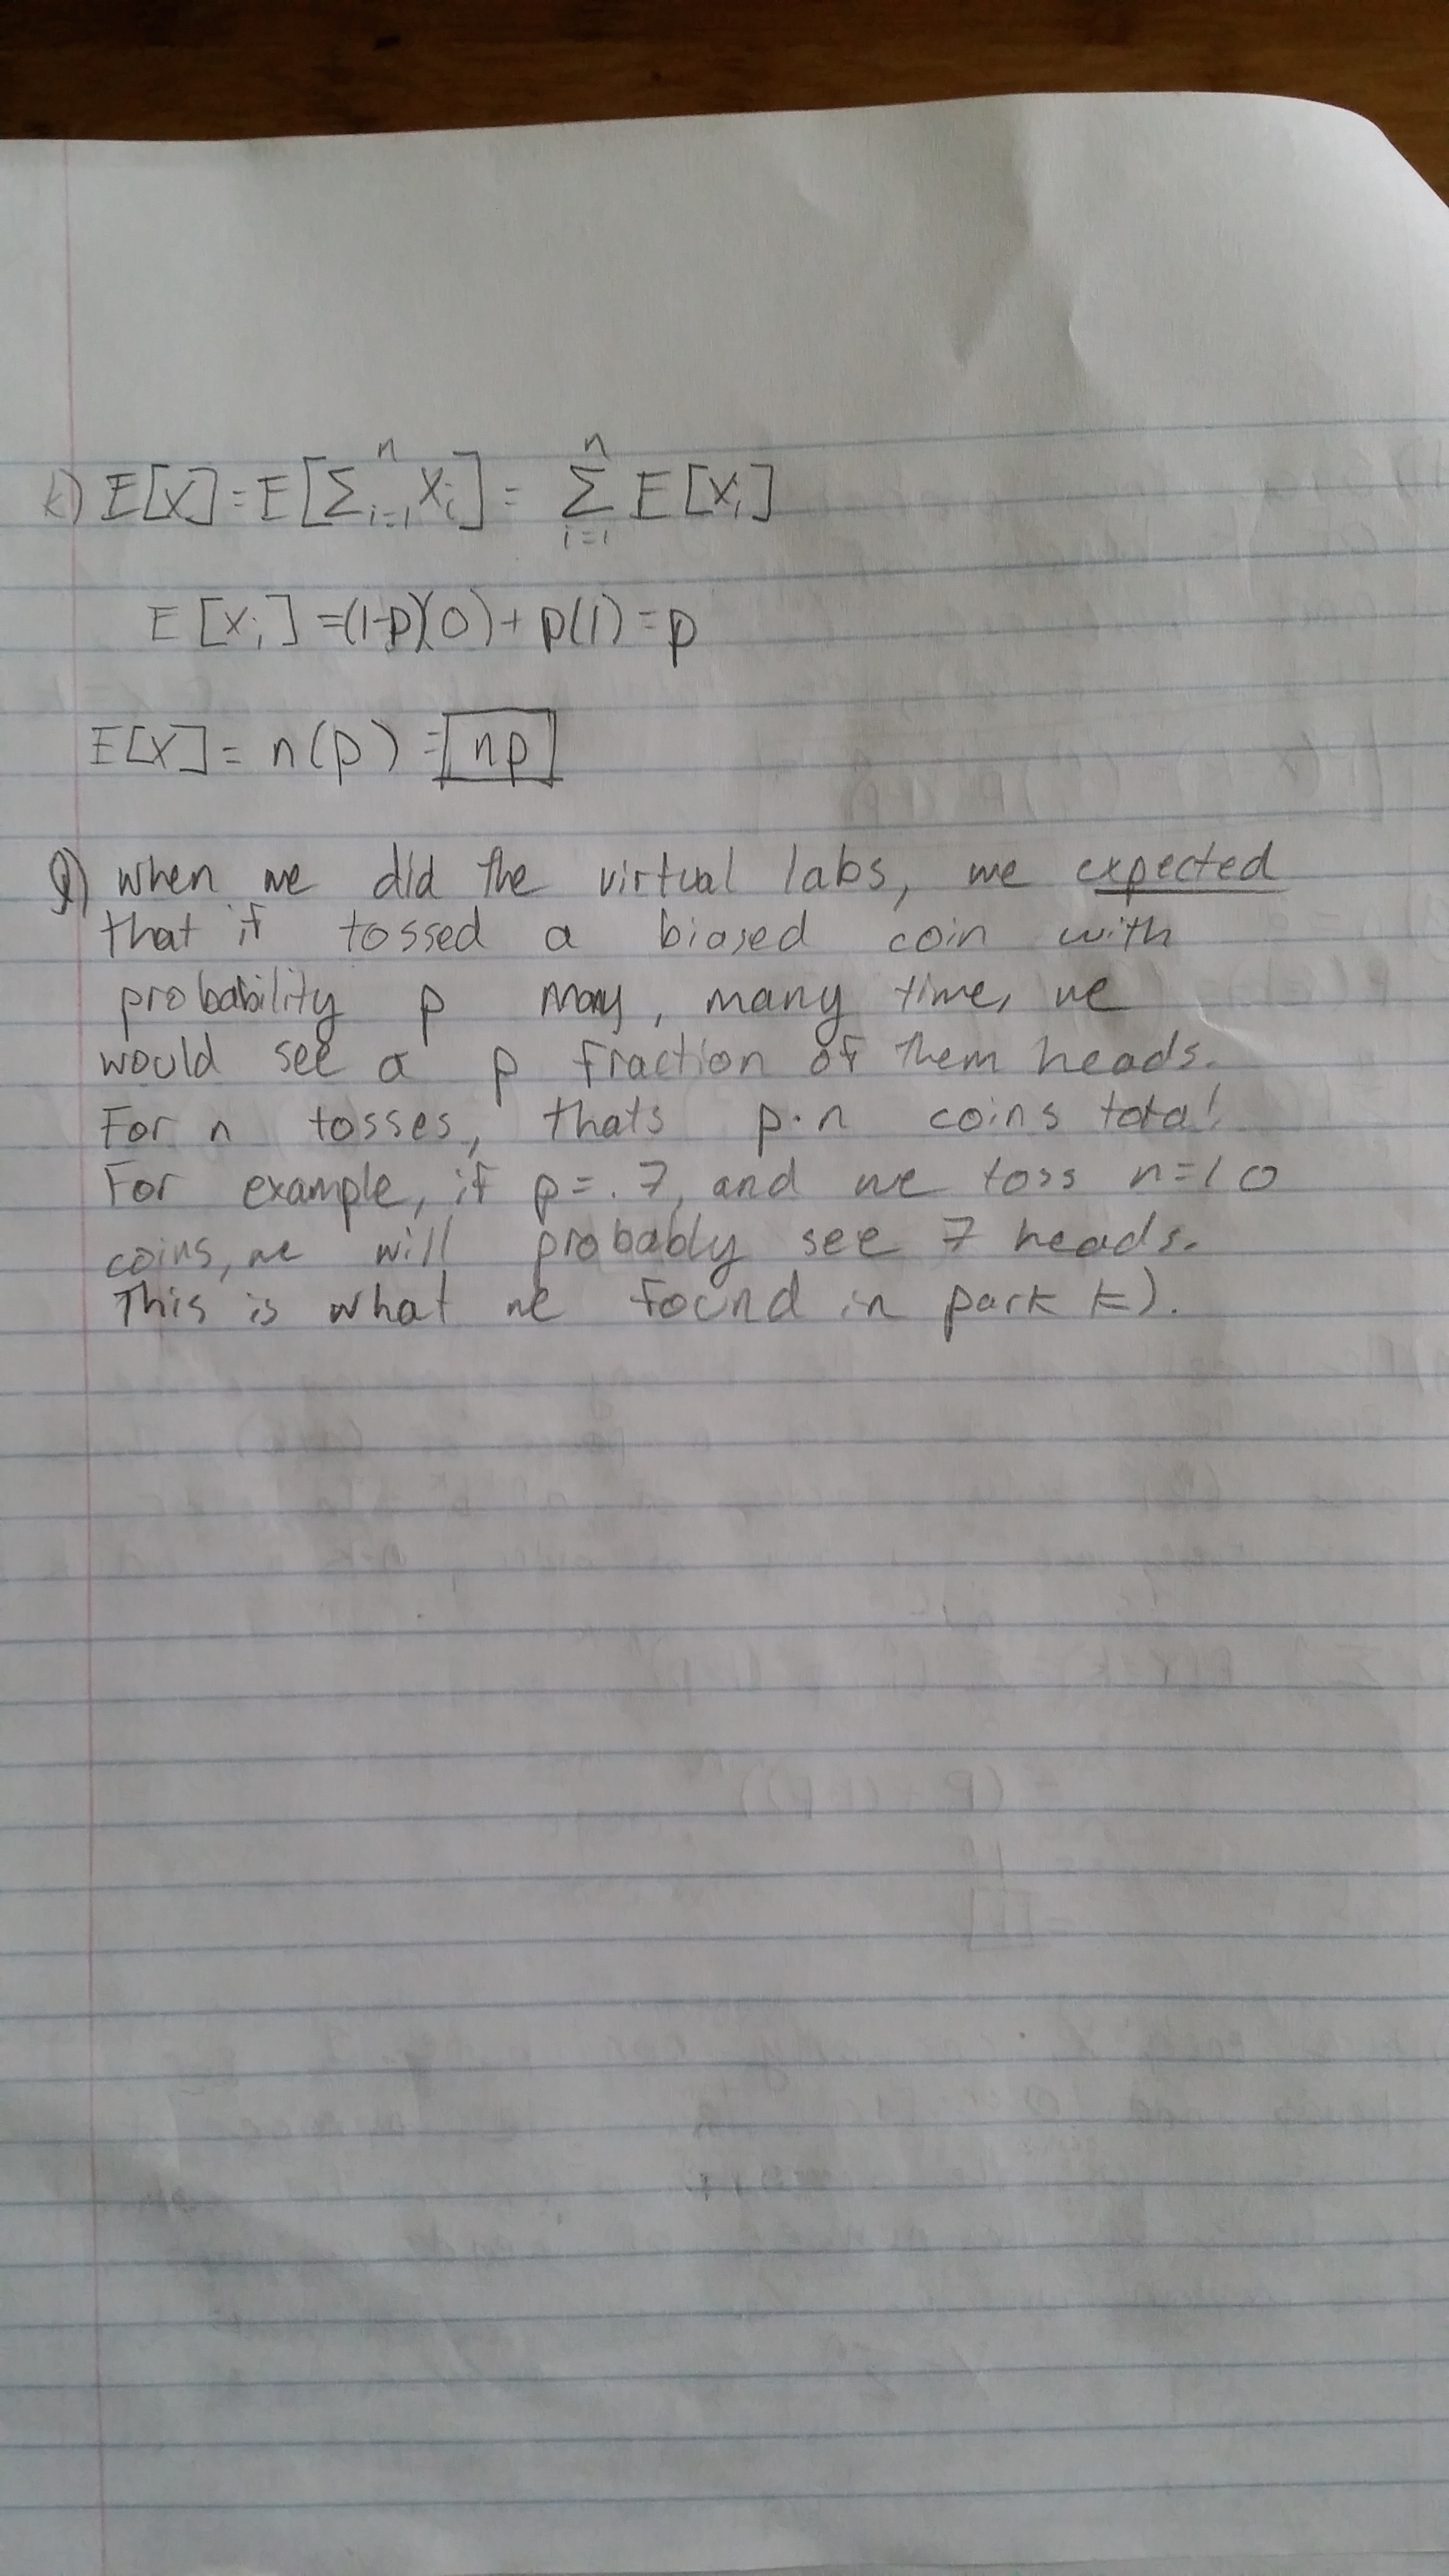 k) E[X] = E[∑ⁿᵢ₌₁ Xᵢ] = ∑ⁿᵢ₌₁ E[Xᵢ]
E[Xᵢ] = (1-p)(0) + p(1) = p
E[X] = n(p) = np
l) when we did the virtual labs, we expected
that if tossed a biased coin with
probability p many, many time, we
would see a p fraction of them heads.
For n tosses, thats p·n coins total
For example, if p=.7, and we toss n=10
coins, we will probably see 7 heads.
This is what we found in park k).